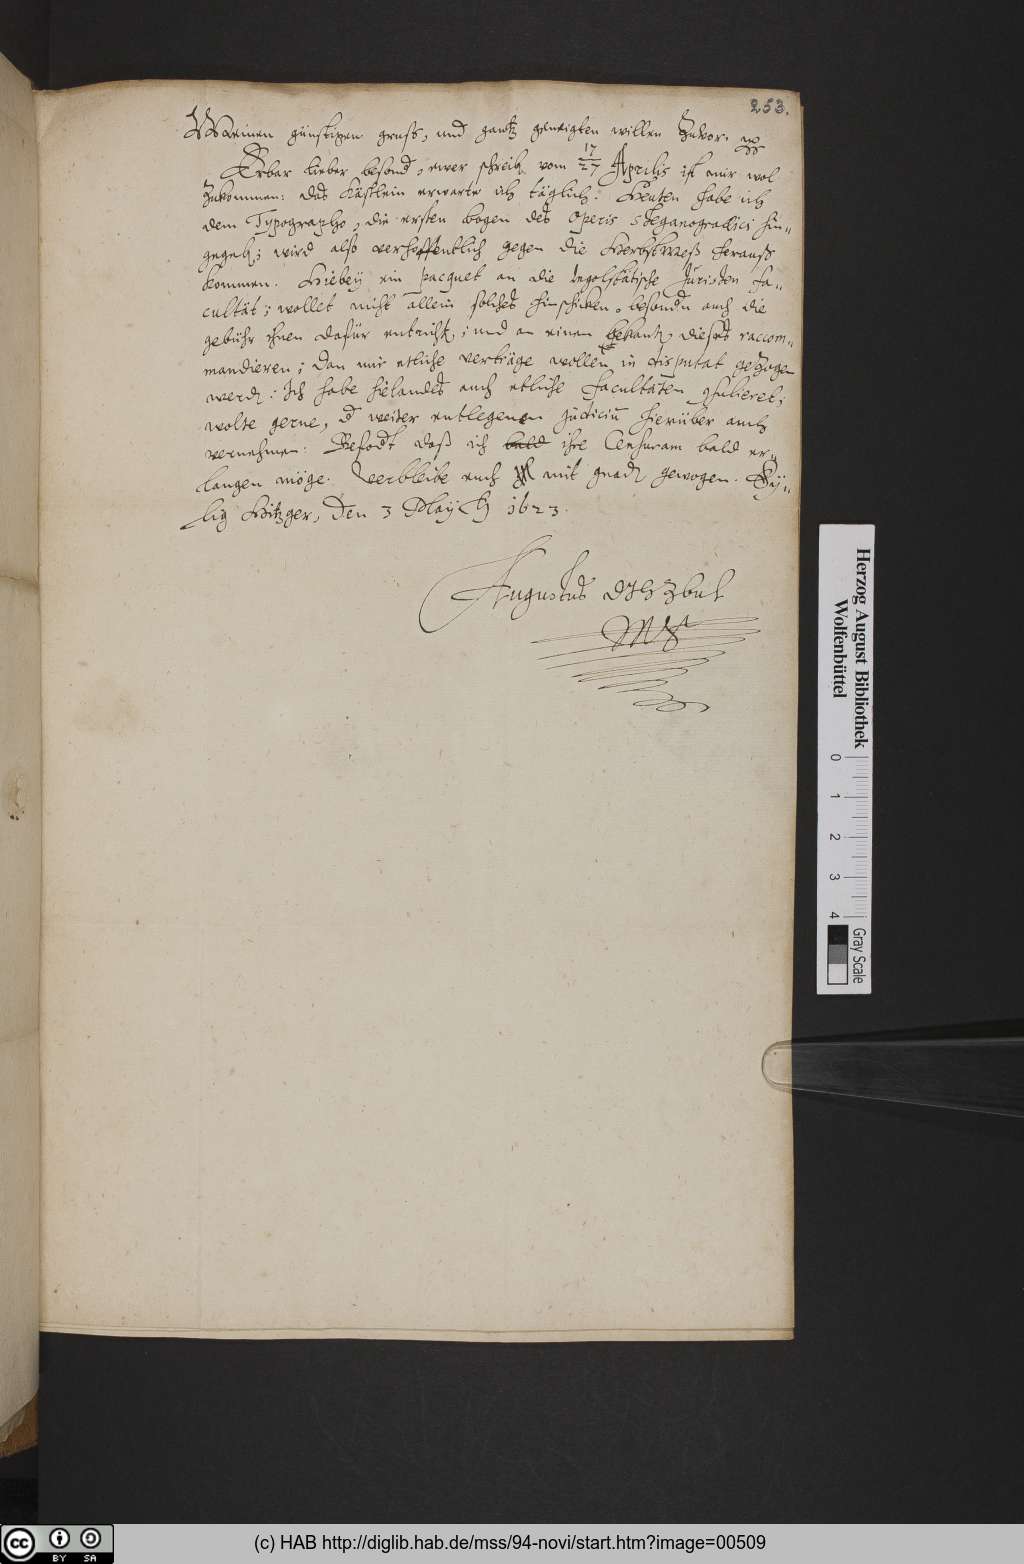 253.
Meinen günstigen gruß, und gantz geneigten willen zuvor.
Erbar lieber besond., ewer schreib. vom 17/27 Aprilis ist mir wol
zukommen: das Kästlein erwarte ich täglich: Heuten habe ich
dem Typographo, die ersten bogen des operis steganographici hin-
gegeb.; wird also verhoffentlich gegen die HerbstMeß herauß
kommen. Hiebey ein pacquet an die Ingolstätische Juristen Fa-
cultät; wollet nicht allein solches hinschicken, besondn auch die
gebühr ihnen dafür entricht.; und an einen bekant. dieses raccom-
mandieren; dan mir etliche verträge wollen in disputat gezogen
werd.: Ich habe hielandes auch etliche Facultäten consulieret;
wolte gerne, d weiter entlegenen Judiciū hierüber auch
vernehmen: Befodt daß ich bald ihre Censuram bald er-
langen möge. Verbleibe euch mit gnad. gewogen.
Hitzger, den 3 May 1623.
Augustus DJHZBuL
Herzog August Bibliothek
Wolfenbüttel
0 1 2 3 4
Gray Scale
cc BY SA
(c) HAB http://diglib.hab.de/mss/94-novi/start.htm?image=00509